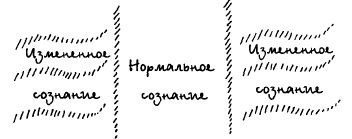 Измененное
сознание
Нормальное
сознание
Измененное
сознание